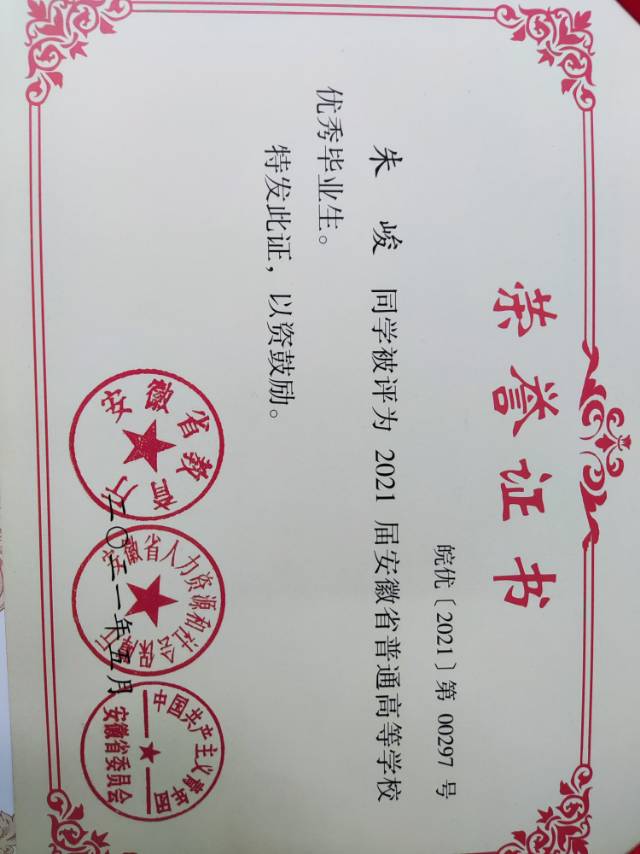 荣誉证书
皖优〔2021〕第 00297 号
朱 峻 同学被评为 2021 届安徽省普通高等学校
优秀毕业生。
特发此证，以资鼓励。
安徽省教育厅
安徽省人力资源和社会保障厅
中国共产主义青年团
安徽省委员会
二〇二一年五月